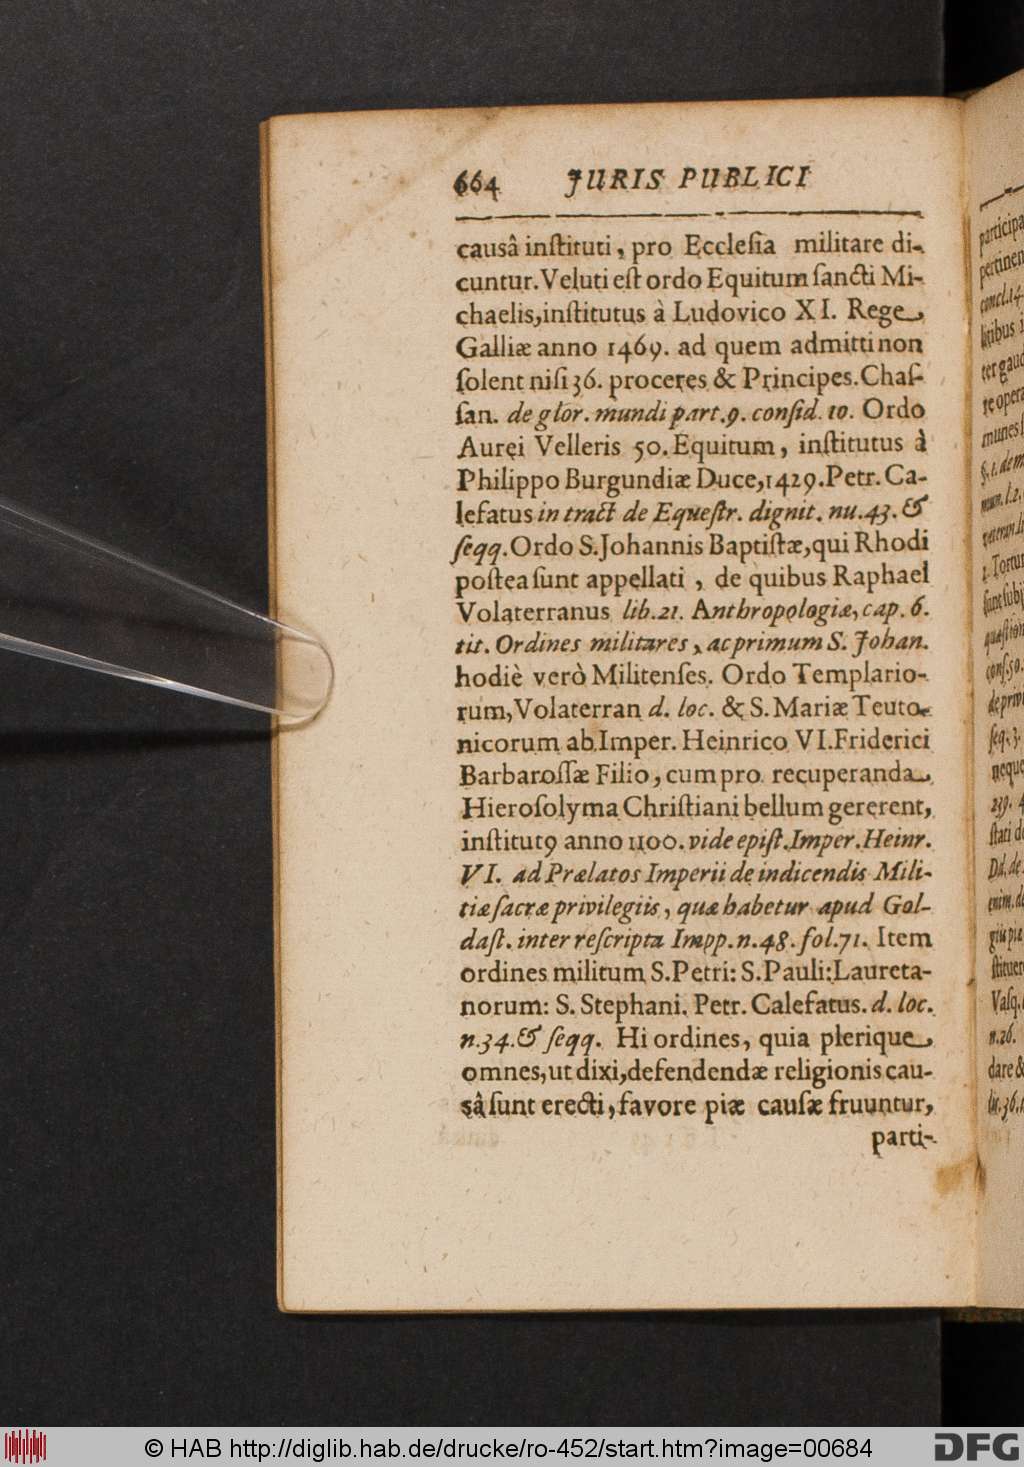 664 JURIS PUBLICI
causâ inſtituti, pro Eccleſia militare di-
cuntur. Veluti eſt ordo Equitum ſancti Mi-
chaelis, inſtitutus à Ludovico XI. Rege
Galliæ anno 1469. ad quem admitti non
ſolent niſi 36. proceres & Principes. Chaſ-
ſan. de glor. mundi part. 9. conſid. 10. Ordo
Aurei Velleris 50. Equitum, inſtitutus à
Philippo Burgundiæ Duce, 1429. Petr. Ca-
lefatus in tract de Equeſtr. dignit. nu. 43. &
ſeqq. Ordo S. Johannis Baptiſtæ, qui Rhodi
poſtea ſunt appellati, de quibus Raphael
Volaterranus lib. 21. Anthropologiæ, cap. 6.
tit. Ordines militares, ac primum S. Johan.
hodiè verò Militenſes. Ordo Templario-
rum, Volaterran d. loc. & S. Mariæ Teuto-
nicorum ab Imper. Heinrico VI. Friderici
Barbaroſſæ Filio, cum pro recuperanda
Hieroſolyma Chriſtiani bellum gererent,
inſtitutꝯ anno 1100. vide epiſt. Imper. Heinr.
VI. ad Prælatos Imperii de indicendis Mili-
tiæ ſacræ privilegiis, quæ habetur apud Gol-
daſt. inter reſcripta Impp. n. 48. fol. 71. Item
ordines militum S. Petri: S. Pauli: Laureta-
norum: S. Stephani. Petr. Calefatus. d. loc.
n. 34. & ſeqq. Hi ordines, quia plerique
omnes, ut dixi, defendendæ religionis cau-
sâ ſunt erecti, favore piæ cauſæ fruuntur,
parti-
participa
pertinen
concl. 14.
litibus
ter gaud
re opera
munes
§. 1. de m
mun. l. 2.
veteran. l
1. Tortur
ſunt ſubj
quæſtion
conſ. 50.
de privi
ſeq. 3.
neque
239. 4
ſtati de
Dd. de
enim. de
giis piæ
ſtituer
Vaſq.
n. 26.
dare &
lir. 36.
© HAB http://diglib.hab.de/drucke/ro-452/start.htm?image=00684
DFG